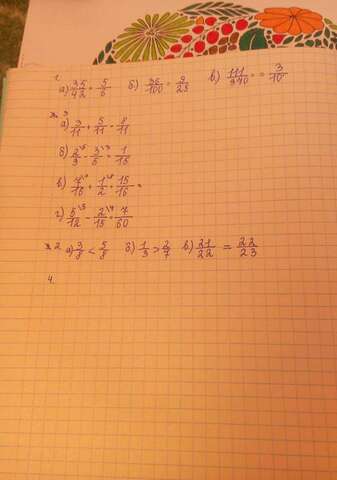 1.
а) 35/42 = 5/6 б) 36/100 = 9/25 в) 111/370 = = 3/10
3
а) 3/11 + 5/11 = 8/11
б) 2/3 \5 - 3/5 \3 = 1/15
в) 7/16 + 1/2 \8 = 15/16 =
г) 5/12 \5 - 2/15 \4 = 7/60
2 а) 3/8 < 5/8 б) 1/3 > 2/7 в) 21/22 = 22/23
4.